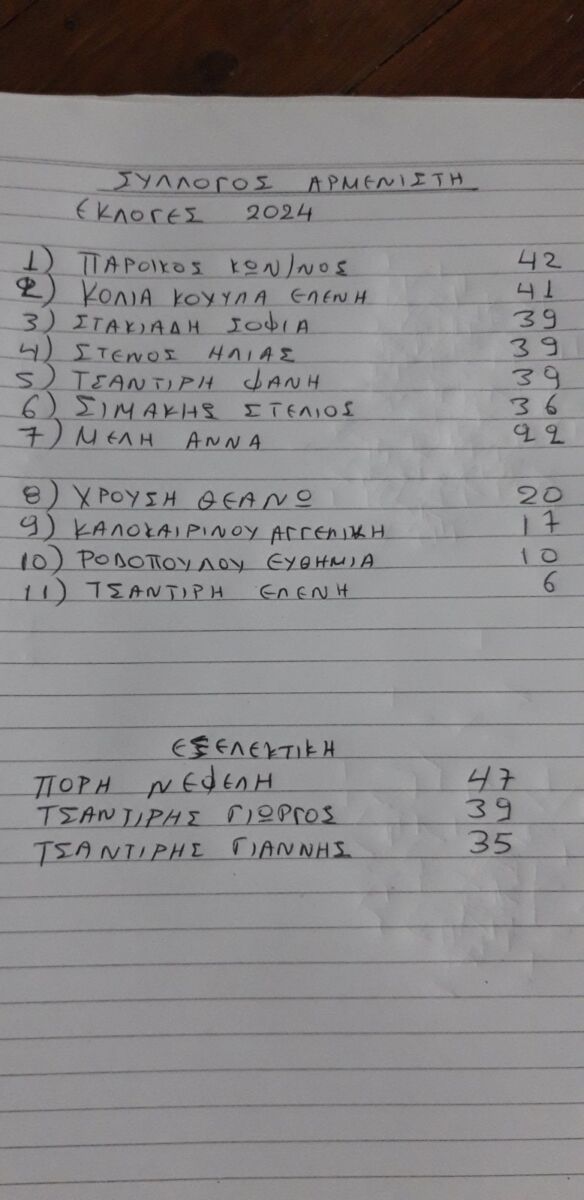 ΣΥΛΛΟΓΟΣ ΑΡΜΕΝΙΣΤΗ
ΕΚΛΟΓΕΣ 2024
1) ΠΑΡΟΙΚΟΣ ΚΩΝ/ΝΟΣ 42
2) ΚΟΛΙΑ ΚΟΥΥΛΑ ΕΛΕΝΗ 41
3) ΣΤΑΚΙΑΔΗ ΣΟΦΙΑ 39
4) ΣΤΕΝΟΣ ΗΛΙΑΣ 39
5) ΤΣΑΝΤΙΡΗ ΦΑΝΗ 39
6) ΣΙΜΑΚΗΣ ΣΤΕΛΙΟΣ 36
7) ΜΕΛΗ ΑΝΝΑ 22
8) ΧΡΟΥΣΗ ΘΕΑΝΩ 20
9) ΚΑΛΟΚΑΙΡΙΝΟΥ ΑΓΓΕΛΙΚΗ 17
10) ΡΟΔΟΠΟΥΛΟΥ ΕΥΘΗΜΙΑ 10
11) ΤΣΑΝΤΙΡΗ ΕΛΕΝΗ 6
ΕΞΕΛΕΚΤΙΚΗ
ΠΟΡΗ ΝΕΦΕΛΗ 47
ΤΣΑΝΤΙΡΗΣ ΓΙΩΡΓΟΣ 39
ΤΣΑΝΤΙΡΗΣ ΓΙΑΝΝΗΣ 35